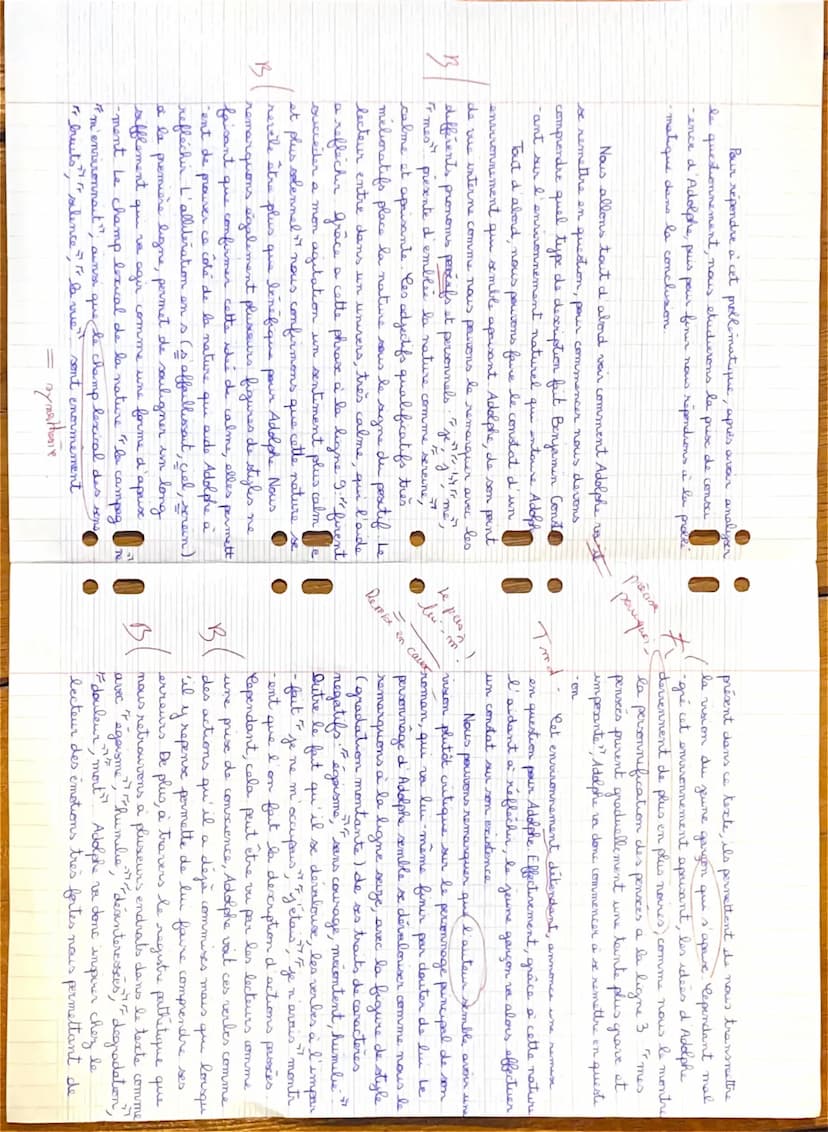 Pour répondre à cet problématique, après avoir analyser
le questionnement, nous etudierons la prise de consci
-ence d'Adolphe, puis pour finir nous répondrons à la problé
-matique dans la conclusion
Nous allons tout d'abord voir comment Adolphe va
se remettre en question, pour commencer nous devons
comprendre quel type de description fait Benjamin Const
-ant sur l'environnement naturel qui entoure Adolph
Tout d'abord, nous pouvons faire le constat d'un
environnement qui semble apaisant Adolphe, de son point
de vue interne comme nous pouvons le remarquer avec les
B différents pronoms et personnels : "je", "j'", "me",
"mes" présente d'emblée la nature comme sereine,
calme et apaisante. Ces adjectifs qualificatifs très
mélioratifs place la nature sous le signe du positif Le
lecteur entre dans un univers, très calme, qui l'aide
a reflechir Grâce a cette phrase à la ligne 9 "firent
succeder a mon agitation un sentiment plus calm e
et plus solennel" nous confirmons que cette nature se
B revèle être plus que bénéfique pour Adolphe Nous
remarquons également plusieurs figures de styles ne
faisant que confirmer cette idé de calme, elles permett
-ent de prouver ce côté de la nature qui aide Adolphe à
reflechir L'allitération en s (s'affaiblissait, ciel, serein)
à la première ligne, permet de souligner un long
sifflement qui va agir comme une forme d'apaise
-ment Le champ lexical de la nature "la campagne"
"m'environnait", ainsi que le champ lexical des sens
"bruits", "silence", "la vue" sont enormement
= synesthésie
présent dans ce texte, ils permettent de nous transmettre
la vision du jeune garçon qui s'apaise Cependant mal
-gré cet environnement apaisant, les idées d'Adolphe
deviennent de plus en plus noires, comme nous le montre
précise pourquoi
la personnification des pensées à la ligne 3 "mes
pensées prirent graduellement une teinte plus grave et
imposante", Adolphe va donc commencer à se remettre en questi
-on
Cet environnement détendant, annonce une remise
en question pour Adolphe Effectivement, grâce à cette nature
l'aidant à réfléchir, le jeune garçon va alors effectuer
un constat sur son existence
Nous pouvons remarquer que l'auteur semble avoir une
vision plutôt critique sur le personnage principal de son
roman, qui va lui-même finir par douter de lui Le
Remise en cause
personnage d'Adolphe semble se dévaloriser comme nous le
remarquons à la ligne seize, avec la figure de style
(gradation montante) de ses traits de caractères
negatifs : "égoisme", "sans courage, mécontent, humilié"
Outre le fait qu'il se dévalorise, les verbes à l'impar
-fait "je ne m'occupais", "j'étais", "je n'avais" montr
-ent que l'on fait la description d'actions passées
Cependant, cela peut être vu par les lecteurs comme
une prise de conscience, Adolphe voit ces verbes comme
B des actions qu'il a déjà commises mais que lorsqu
'il y repense permette de lui faire comprendre ses
erreurs De plus, à travers le registre pathétique que
B nous retrouvons à plusieurs endroits dans le texte comme
avec "égoisme", "humilié", "désinteressées", "dégradation",
"douleur", "mort" Adolphe va donc inspirer chez le
lecteur des émotions très fortes nous permettant de